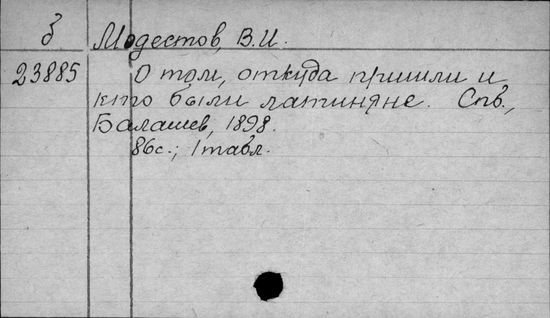 б Модестов, В.И.
23885 О том, откуда пришли и
кто были латиняне. Спб.,
Балашев, 1898.
86с.; 1 табл.